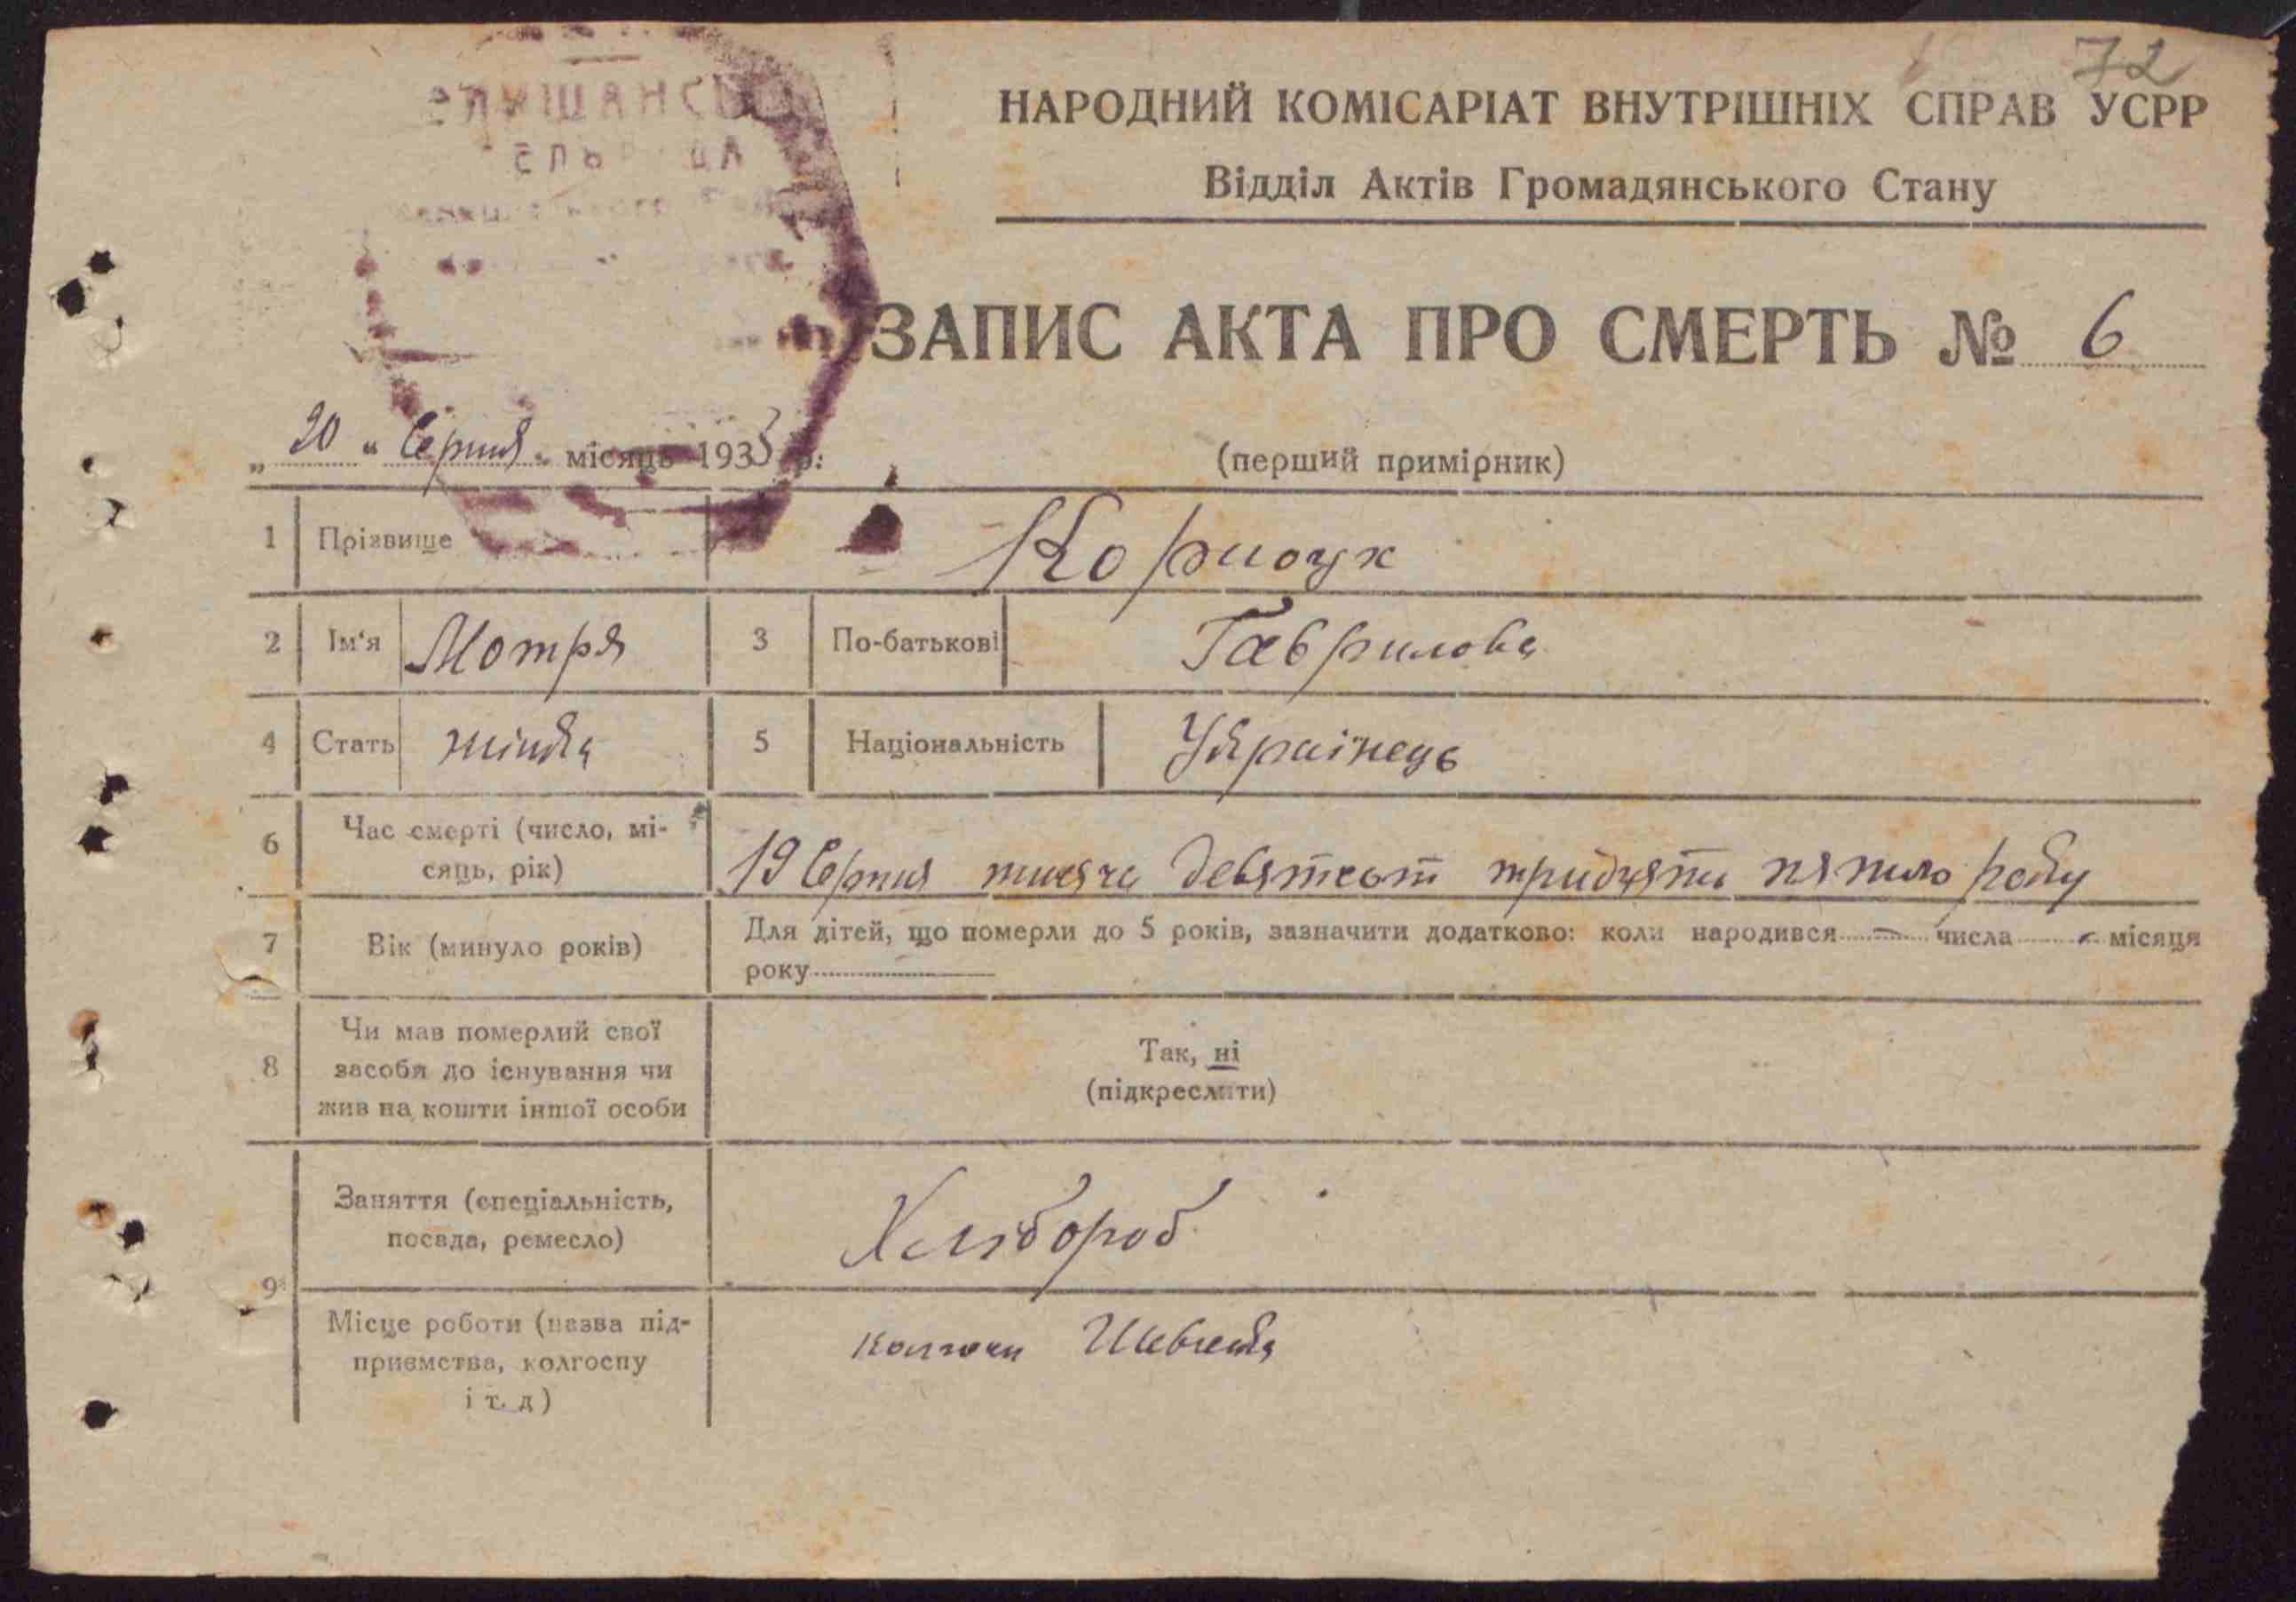 72
НАРОДНИЙ КОМІСАРІАТ ВНУТРІШНІХ СПРАВ УСРР
Відділ Актів Громадянського Стану
ЗАПИС АКТА ПРО СМЕРТЬ № 6
„ 20 “ Серпня місяць 1935 р.
(перший примірник)
1 Прізвище
2 Ім‘я Мотря 3 По-батькові Гаврилова
4 Стать жінка 5 Національність Українець
6 Час смерті (число, мі-
сяць, рік) 19 Серпня тисяча девятсот тридцять пятого року
7 Вік (минуло років) Для дітей, що померли до 5 років, зазначити додатково: коли народився числа місяця
року
8 Чи мав померлий свої
засоби до існування чи
жив на кошти іншої особи
Так, ні
(підкреслити)
9 Заняття (спеціальність,
посада, ремесло) Хлібороб
Місце роботи (назва під-
приємства, колгоспу
і т. д)